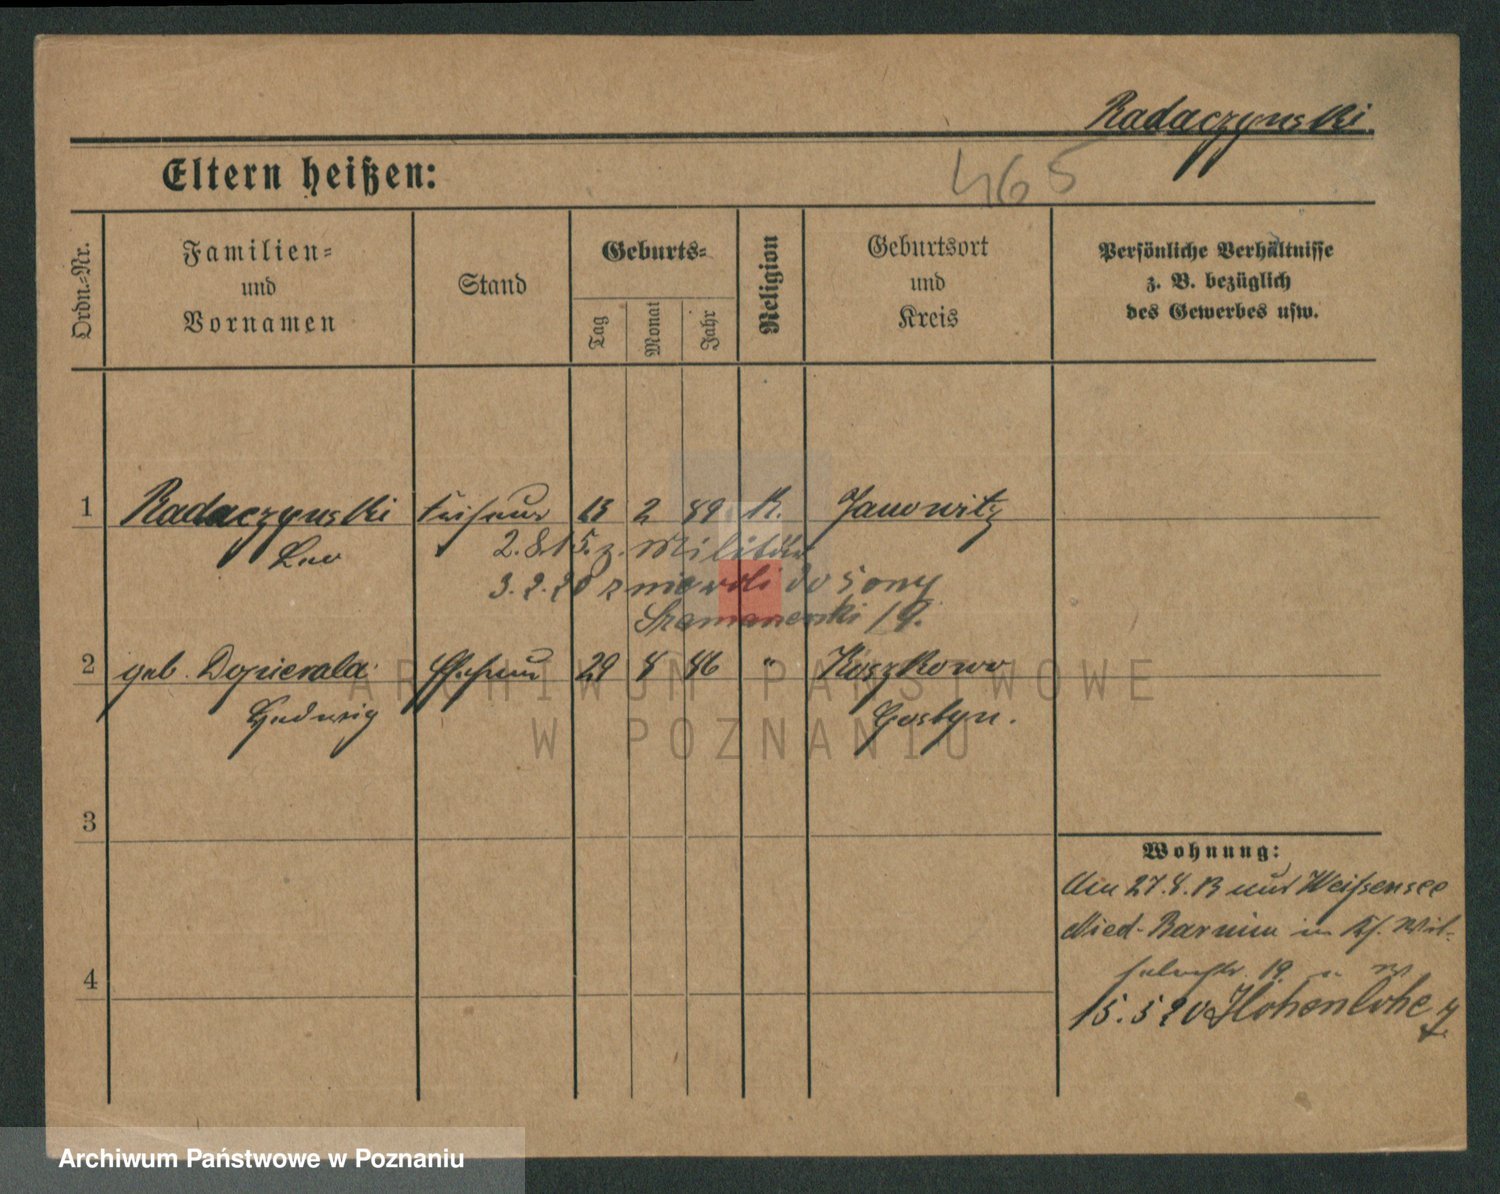 Radaczynski.
Eltern heißen:
465
Ordn.-Nr.
Familien-
und
Vornamen
Stand
Geburts-
Tag
Monat
Jahr
Religion
Geburtsort
und
Kreis
Persönliche Verhältnisse
z. B. bezüglich
des Gewerbes usw.
1 Radaczynski Friseur 13 2 89 K. Janowitz
Leo 2.8.15. z. Militär
3.2.20 z niewoli do żony
19.
2 geb. Dopierala Ehefrau 29 8 86 " Koszkowo
Hedwig Gostyn.
3
4
Wohnung:
27.8.13 Weißensee
Nied-Barnim in
19
15.5 20 Hohenlohe
ARCHIWUM PAŃSTWOWE
W POZNANIU
Archiwum Państwowe w Poznaniu